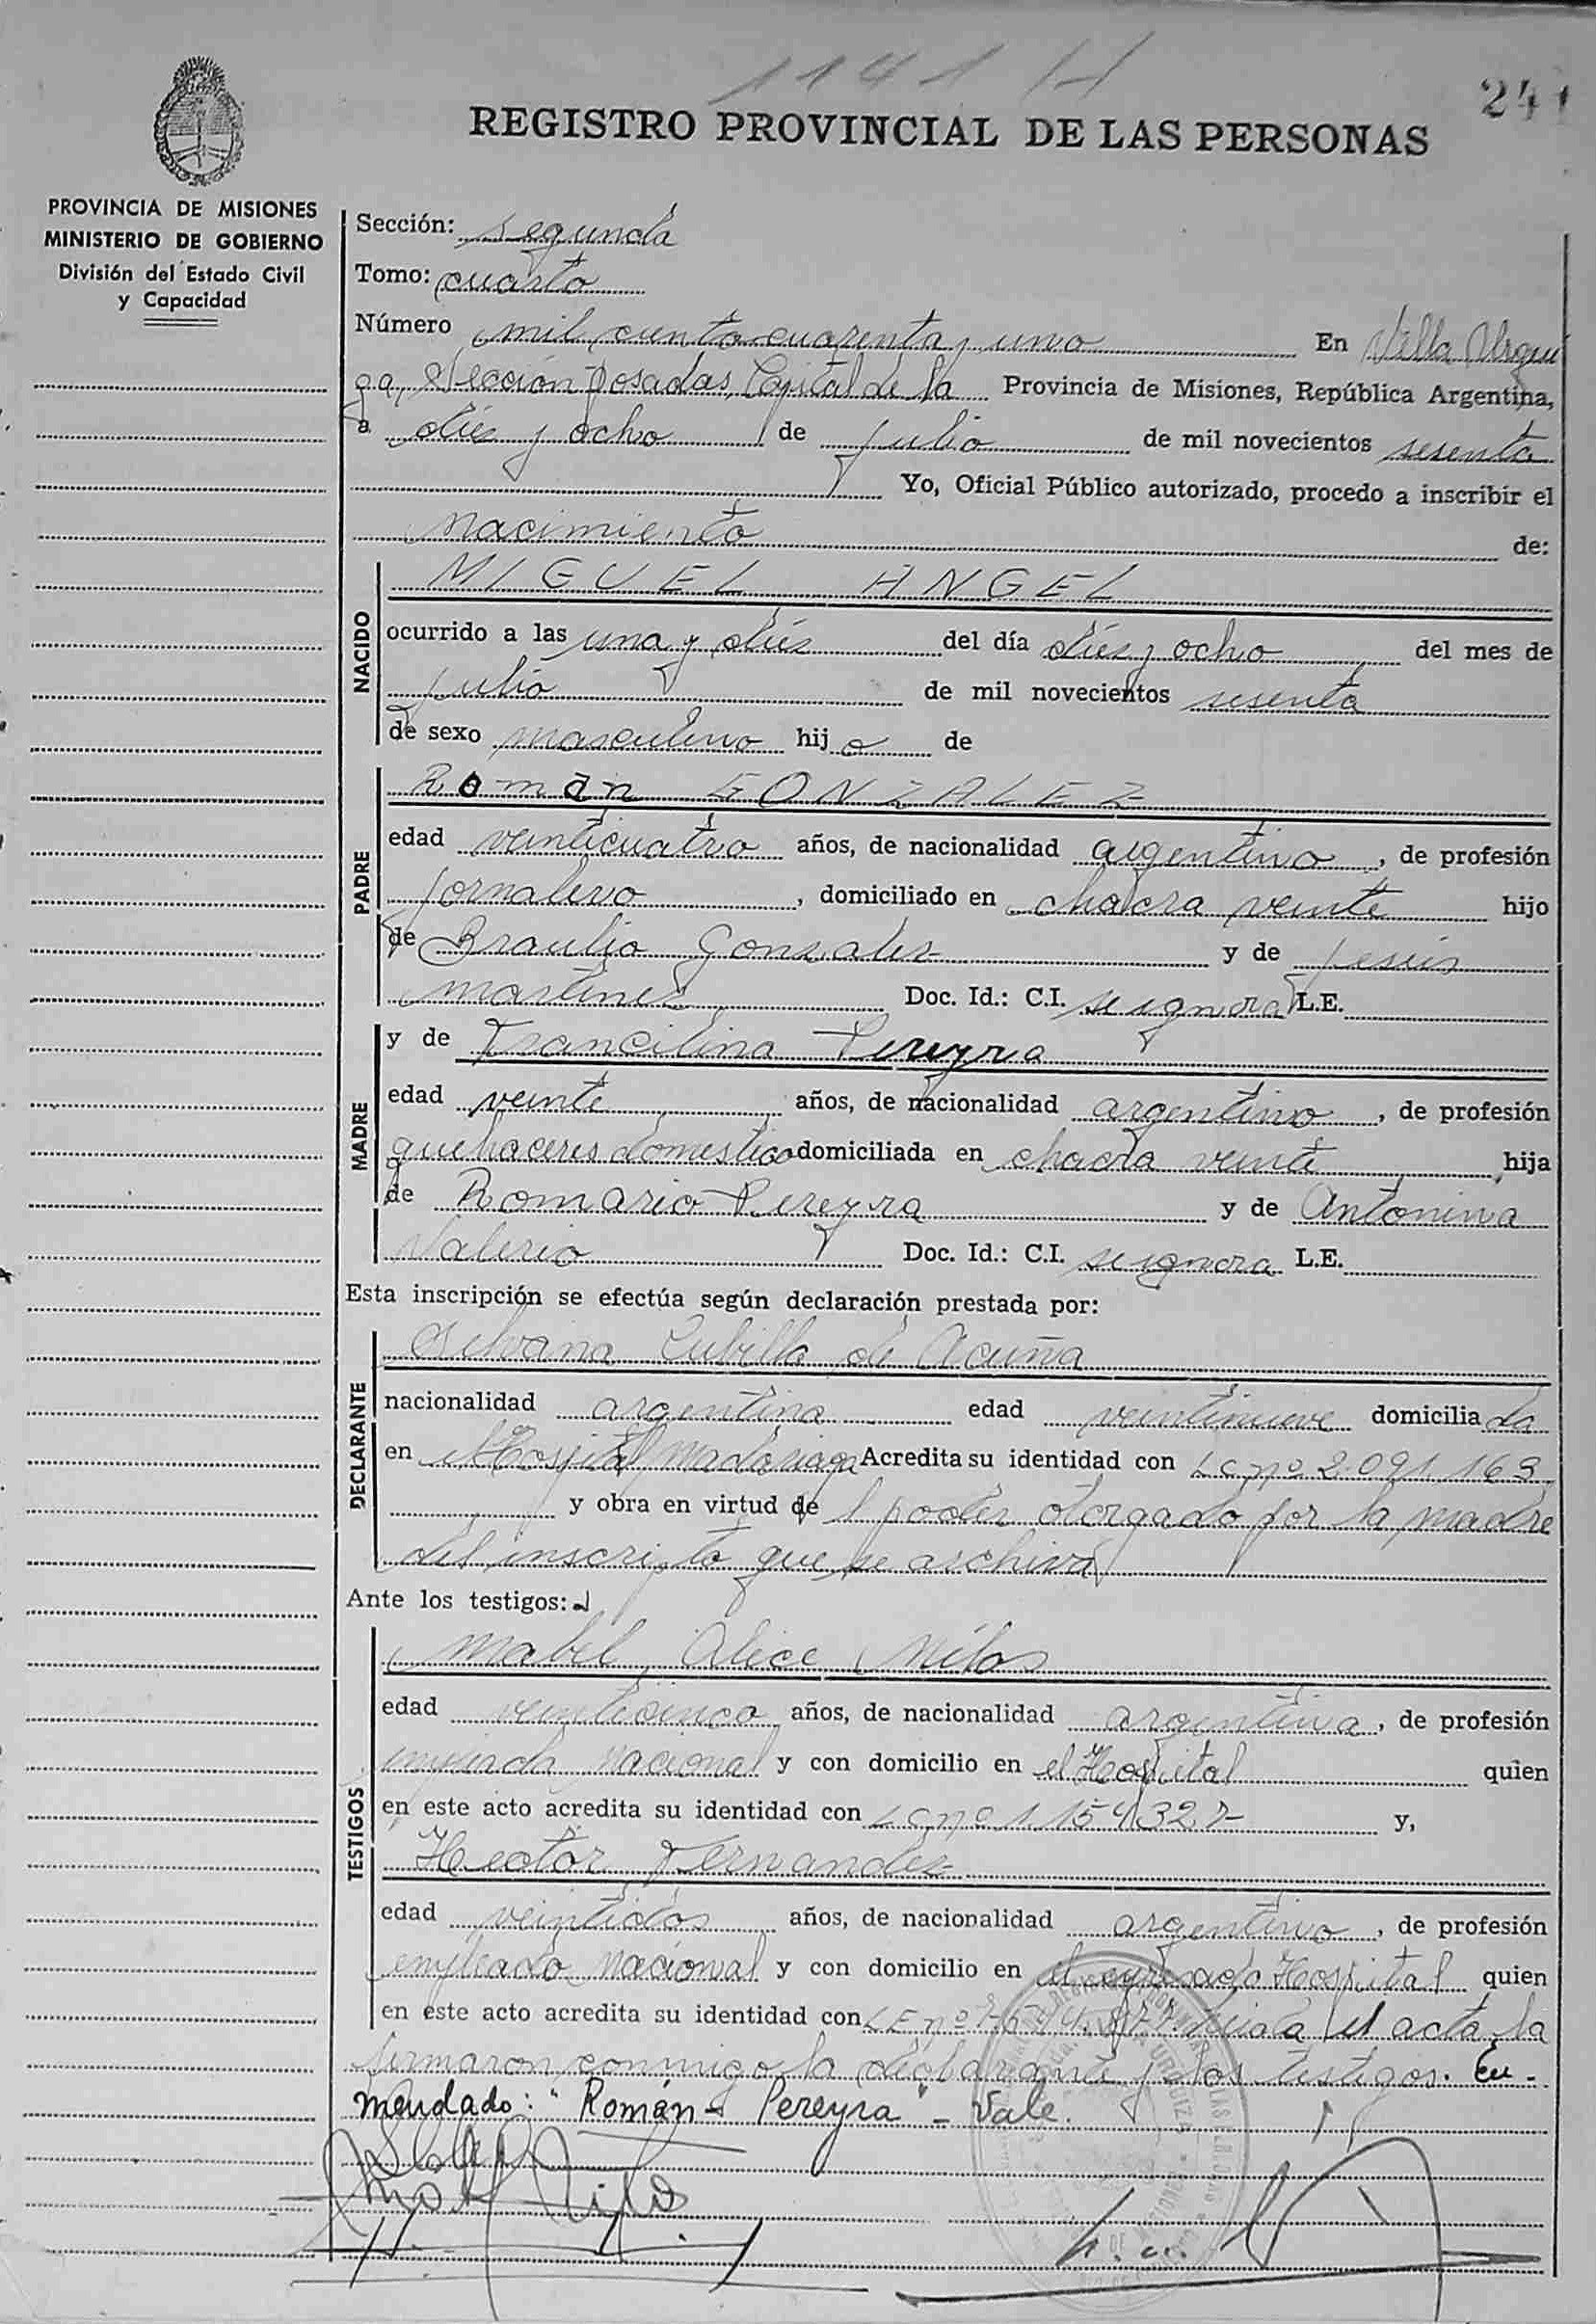 1141 H
241
REGISTRO PROVINCIAL DE LAS PERSONAS
PROVINCIA DE MISIONES
MINISTERIO DE GOBIERNO
División del Estado Civil
y Capacidad
Sección: segunda
Tomo: cuarto
Número mil ciento cuarenta y uno En Villa Urqui
za, Sección Posadas, Capital de la Provincia de Misiones, República Argentina,
a diez y ocho de julio de mil novecientos sesenta
Yo, Oficial Público autorizado, procedo a inscribir el
nacimiento de:
NACIDO
MIGUEL ANGEL
ocurrido a las una y diéz del día diéz y ocho del mes de
julio de mil novecientos sesenta
de sexo masculino hijo de
PADRE
Román GONZALEZ
edad veinticuatro años, de nacionalidad argentino, de profesión
jornalero, domiciliado en chacra veinte hijo
de Braulio Gonzalez y de Jesús
Martinez Doc. Id.: C.I. se ignora L.E.
MADRE
y de Francilina Pereyra
edad veinte años, de nacionalidad argentino, de profesión
quehaceres domestico domiciliada en chacra veinte hija
de Romario Pereyra y de Antonina
Valerio Doc. Id.: C.I. se ignora L.E.
Esta inscripción se efectúa según declaración prestada por:
DECLARANTE
Silvana Cubilla de Acuña
nacionalidad argentina edad veintinueve domiciliada
en el Hospital Madariaga Acredita su identidad con LC nº 2.091.163
y obra en virtud del poder otorgado por la madre
del inscripto que se archiva
Ante los testigos:
TESTIGOS
Mabel Alice Milos
edad veinticinco años, de nacionalidad argentina, de profesión
empleada nacional y con domicilio en el Hospital quien
en este acto acredita su identidad con LC nº 1.154.327 y,
Hector Fernandez
edad veintidos años, de nacionalidad argentino, de profesión
empleado nacional y con domicilio en el expresado Hospital quien
en este acto acredita su identidad con LE nº leida el acta la
firmaron conmigo la declarante y los testigos. En-
mendado: "Román - Pereyra" - Vale.